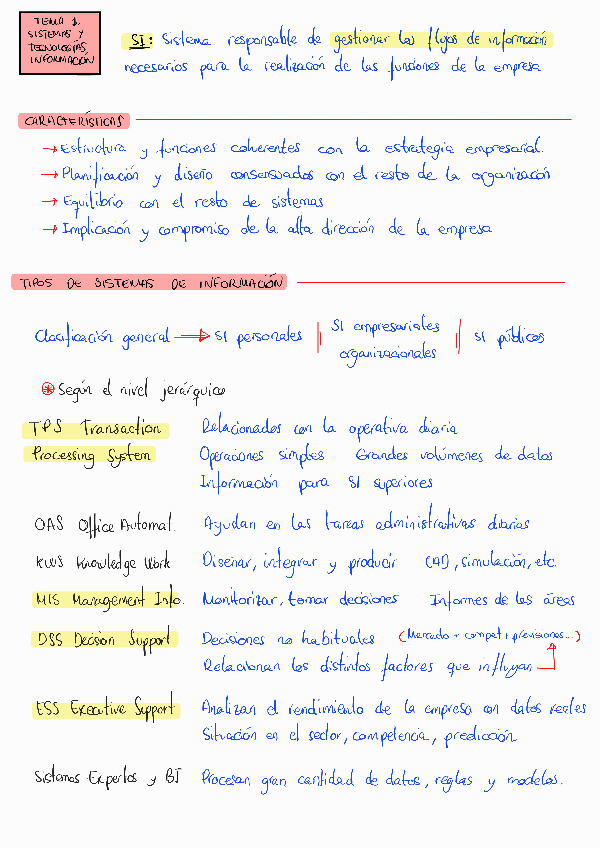 TEMA 1.
SISTEMAS Y
TECNOLOGÍAS
INFORMACIÓN
SI: Sistema responsable de gestionar los flujos de información
necesarios para la realización de las funciones de la empresa
CARACTERÍSTICAS
→ Estructura y funciones coherentes con la estrategia empresarial.
→ Planificación y diseño consensuados con el resto de la organización
→ Equilibrio con el resto de sistemas
→ Implicación y compromiso de la alta dirección de la empresa
TIPOS DE SISTEMAS DE INFORMACIÓN
Clasificación general ⟹ SI personales || SI empresariales organizacionales || SI públicos
* Según el nivel jerárquico
TPS Transaction Relacionados con la operativa diaria
Processing System Operaciones simples Grandes volúmenes de datos
Información para SI superiores
OAS Office Automat. Ayudan en las tareas administrativas diarias
KWS Knowledge Work Diseñar, integrar y producir CAD, simulación, etc.
MIS Management Info. Monitorizar, tomar decisiones Informes de las áreas
DSS Decision Support Decisiones no habituales (Mercado + compet + previsiones...)
Relacionan los distintos factores que influyan
ESS Executive Support Analizan el rendimiento de la empresa con datos reales
Situación en el sector, competencia, predicción
Sistemas Expertos y BI Procesan gran cantidad de datos, reglas y modelos.